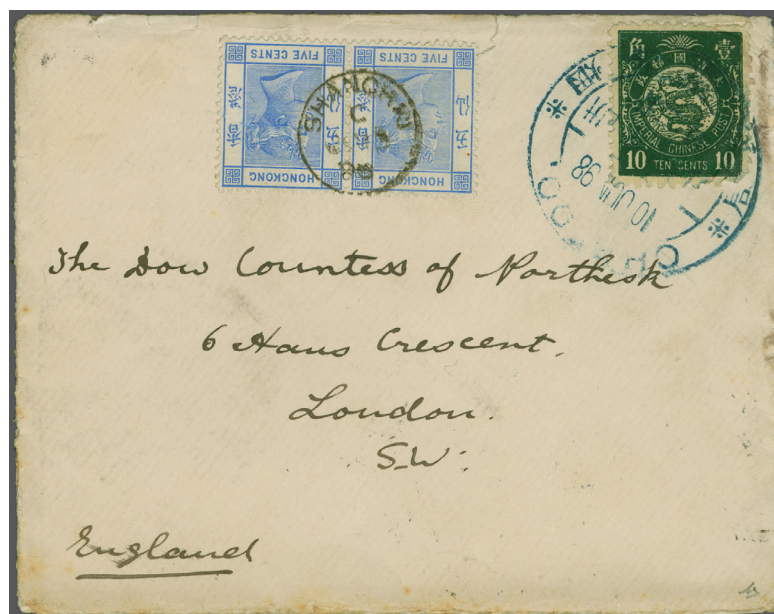 FIVE CENTS
FIVE CENTS
HONGKONG
HONGKONG
五仙
SHANGHAI
C
98
角
壹
IMPERIAL CHINESE POST
10 TEN CENTS 10
10 JUN 98
The Dow Countess of Northesk
6 Hans Crescent.
London.
S.W:
England